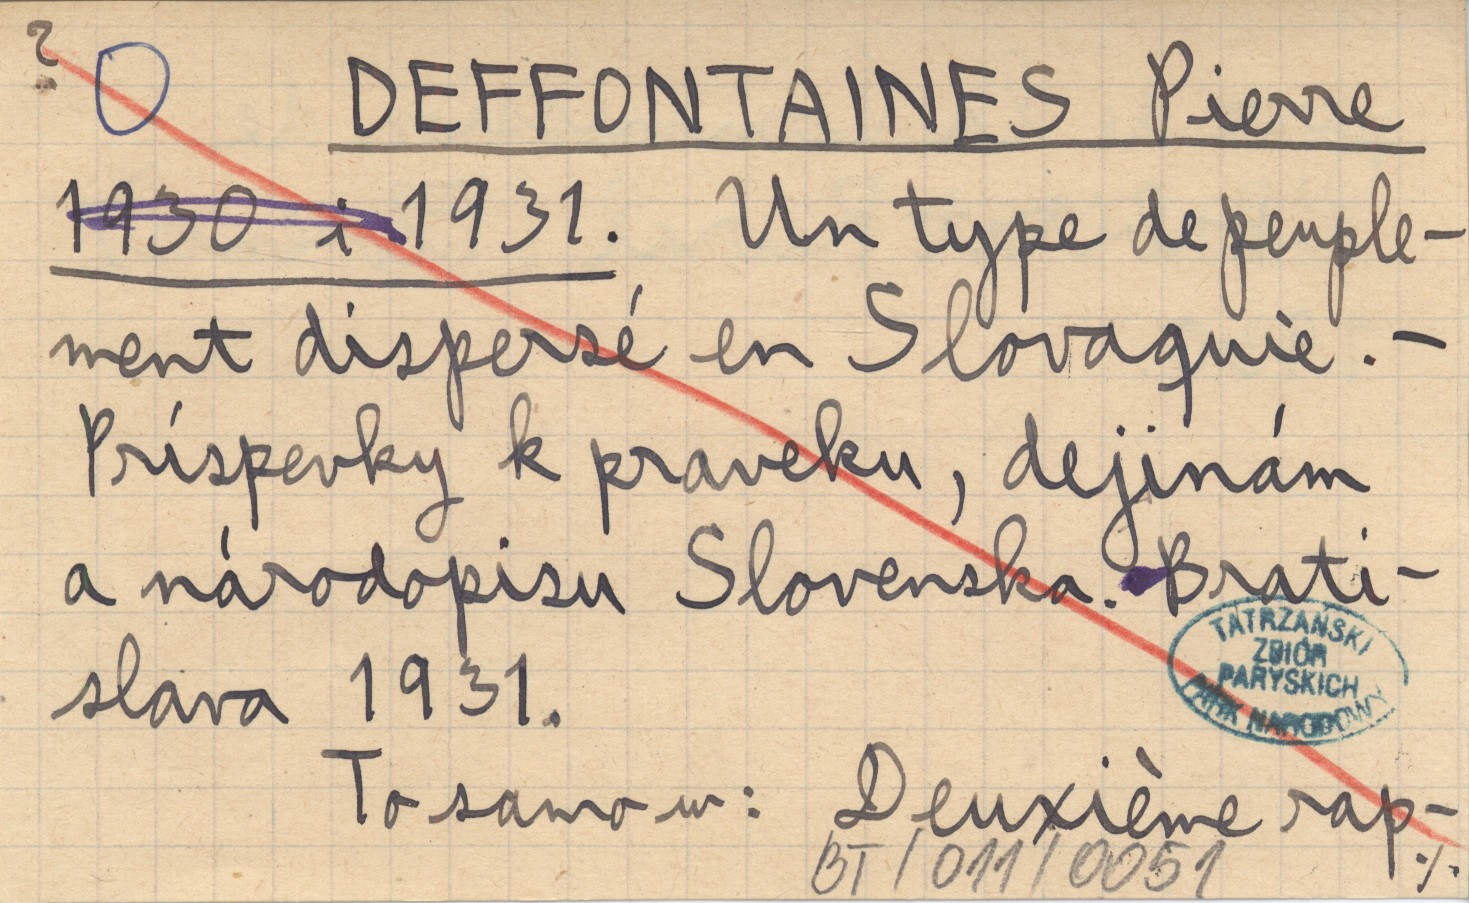 ?
DEFFONTAINES Pierre
1930 i 1931. Un type de peuple-
ment dispersé en Slovaquie. -
Príspevky k praveku, dejinám
a národopisu Slovenska. Brati-
slava 1931.
TATRZAŃSKI
ZBIÓR
PARYSKICH
PARK NARODOWY
To samo w: Deuxième rap-
BT/011/0051
./.